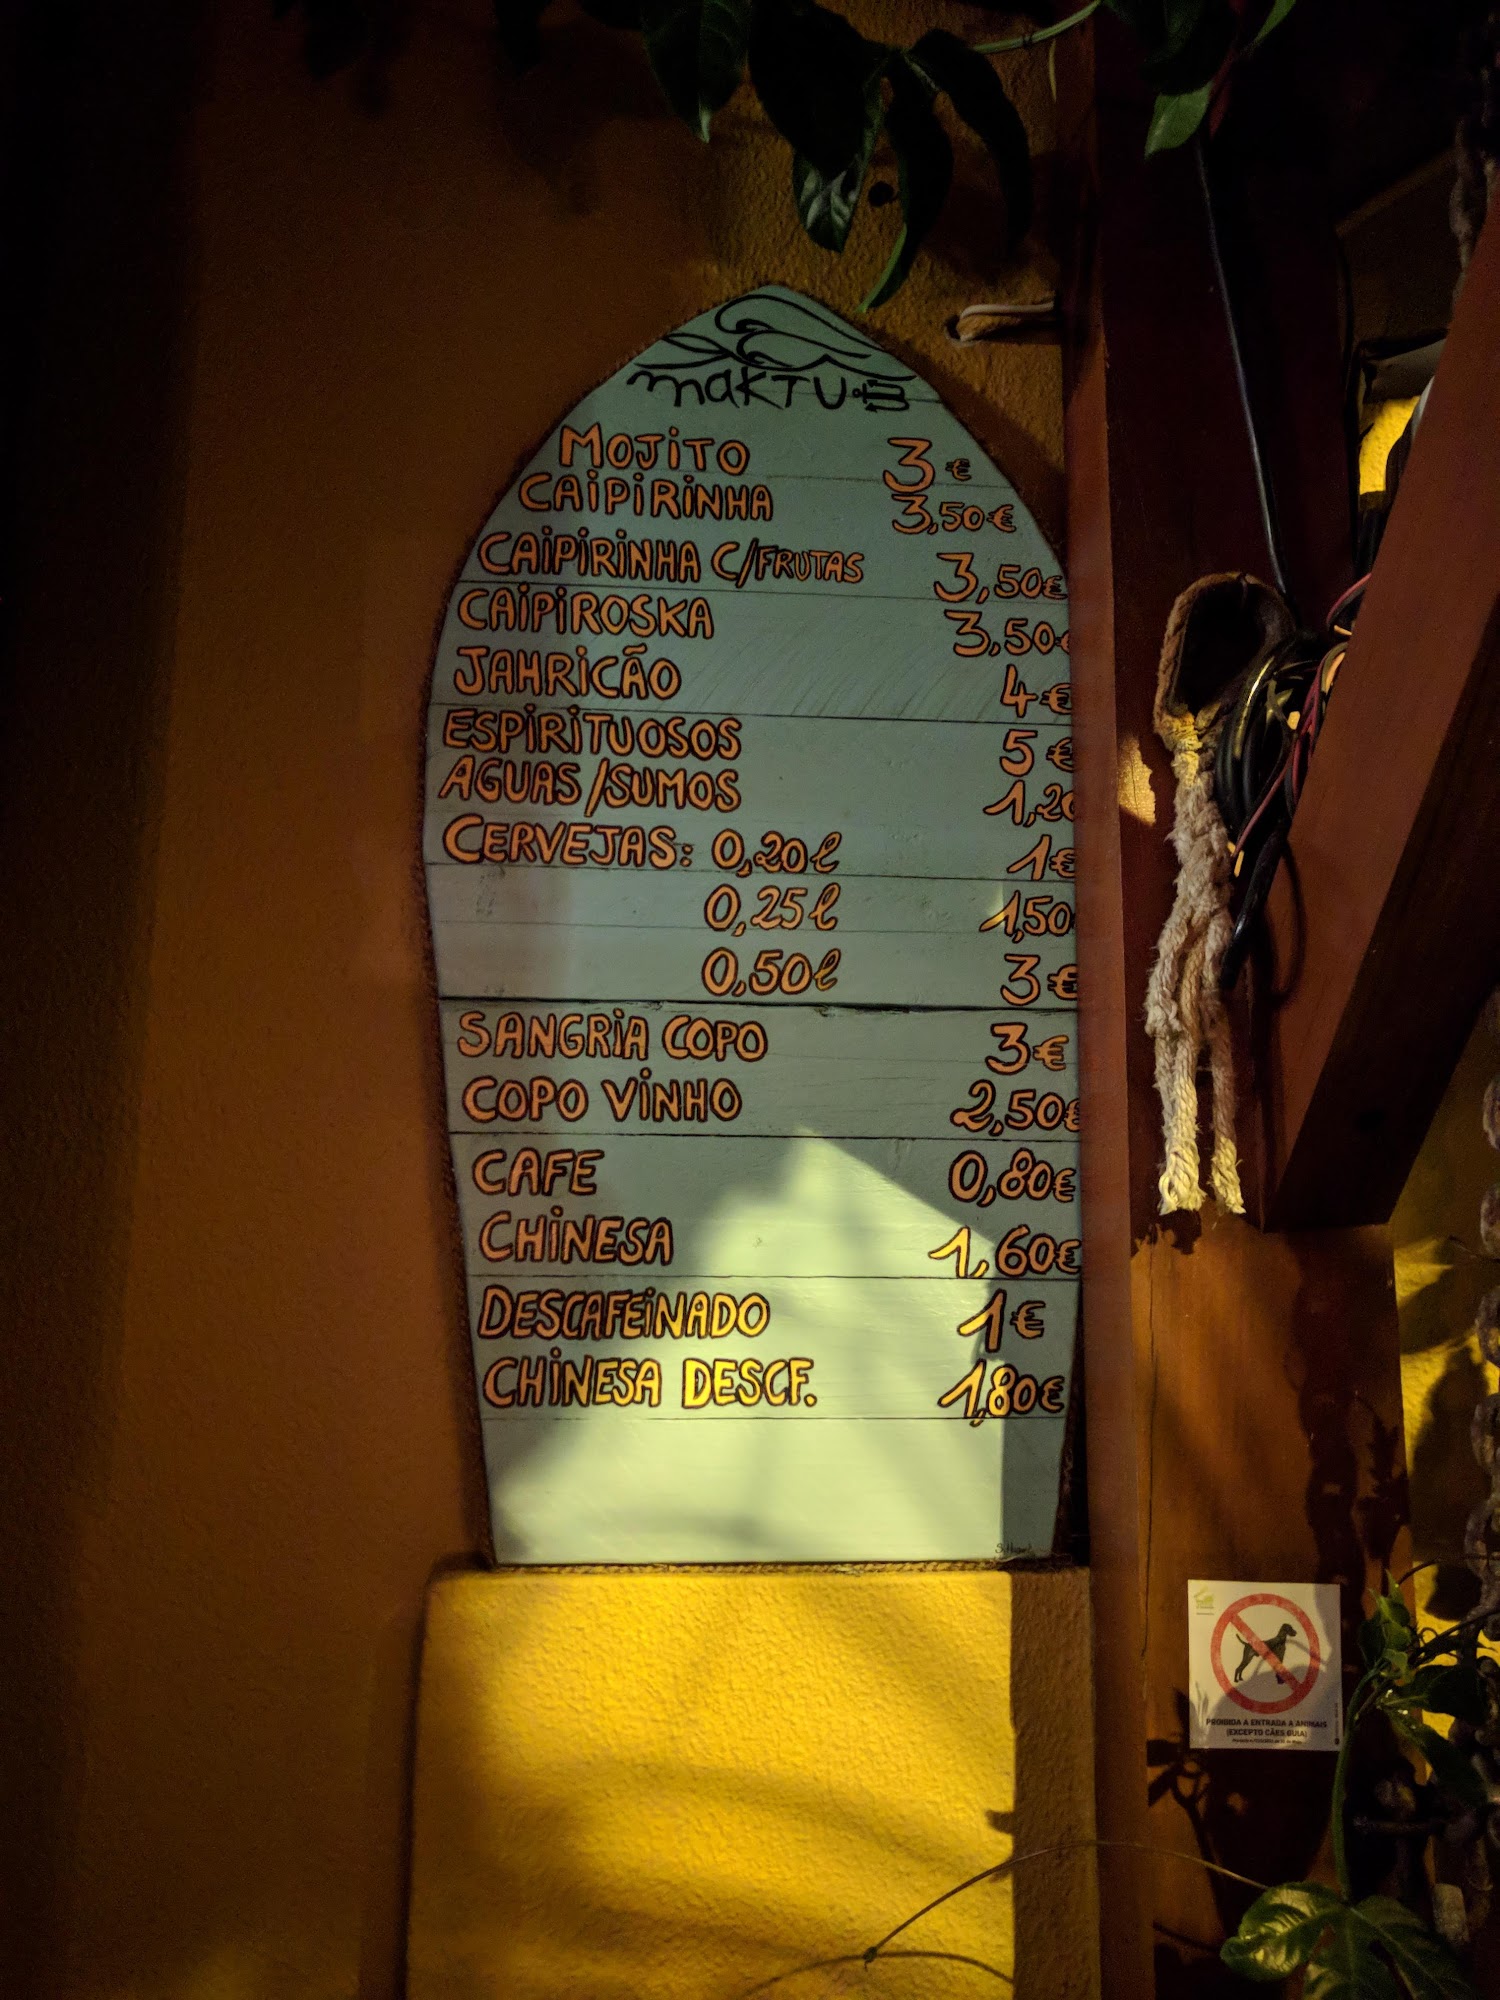 maktub
MOJITO 3€
CAIPIRINHA 3,50€
CAIPIRINHA C/FRUTAS 3,50€
CAIPIROSKA 3,50€
JAHRICÃO 4€
ESPIRITUOSOS 5€
AGUAS/SUMOS 1,20
CERVEJAS: 0,20l 1€
0,25l 1,50
0,50l 3€
SANGRIA COPO 3€
COPO VINHO 2,50€
CAFE 0,80€
CHINESA 1,60€
DESCAFEINADO 1€
CHINESA DESCF. 1,80€
PROIBIDA A ENTRADA A ANIMAIS
(EXCEPTO CÃES GUIA)